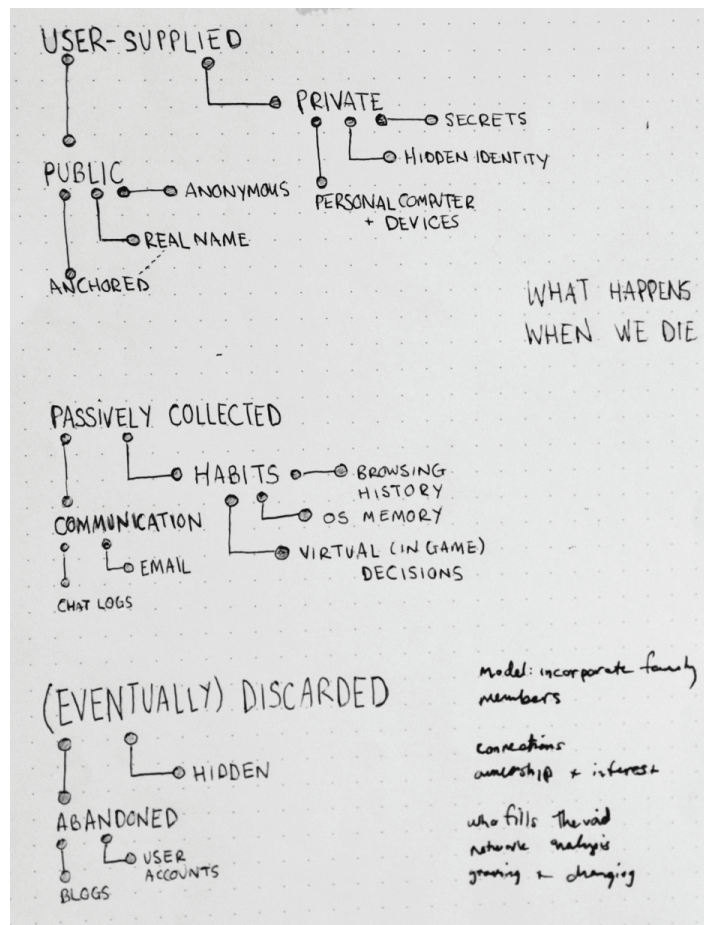 USER-SUPPLIED
PRIVATE
SECRETS
HIDDEN IDENTITY
PERSONAL COMPUTER
+ DEVICES
PUBLIC
ANONYMOUS
REAL NAME
ANCHORED
WHAT HAPPENS
WHEN WE DIE
PASSIVELY COLLECTED
HABITS
BROWSING
HISTORY
OS MEMORY
VIRTUAL (IN GAME)
DECISIONS
COMMUNICATION
EMAIL
CHAT LOGS
(EVENTUALLY) DISCARDED
HIDDEN
ABANDONED
USER
ACCOUNTS
BLOGS
Model: incorporate family
members
connections
ownership + interest
who fills the void
network analysis
growing + changing